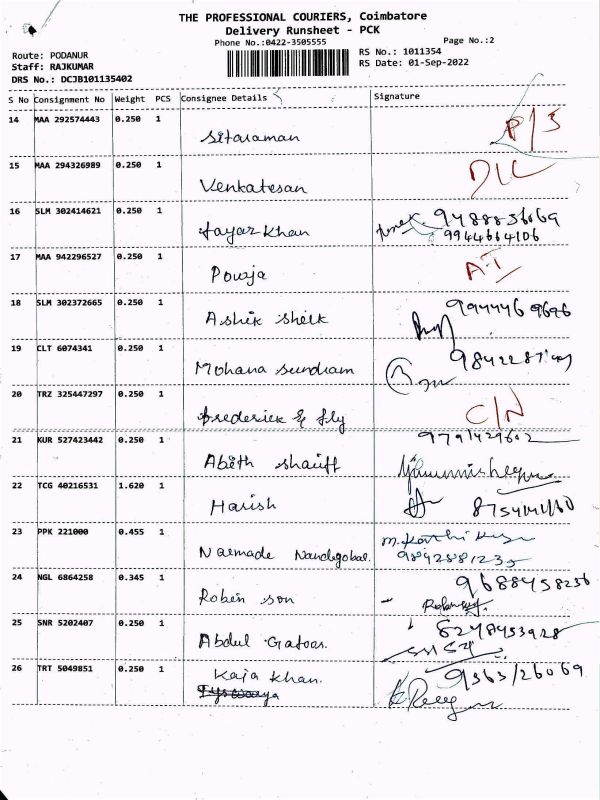 THE PROFESSIONAL COURIERS, Coimbatore
Delivery Runsheet - PCK
Phone No.:0422-3505555
Page No.:2
Route: PODANUR
RS No.: 1011354
Staff: RAJKUMAR
RS Date: 01-Sep-2022
DRS No.: DCJB101135402
S No Consignment No Weight PCS Consignee Details Signature
14 MAA 292574443 0.250 1 Sitaraman P/S
15 MAA 294326989 0.250 1 Venkatesan D/C
16 SLM 302414621 0.250 1 tayar khan
9944664106
17 MAA 942296527 0.250 1 Pouja
18 SLM 302372665 0.250 1 Ashik sheik
19 CLT 6074341 0.250 1 Mohana sundram
20 TRZ 325447297 0.250 1 frederick & fly C/N
21 KUR 527423442 0.250 1 Abith shariff 9791429602
22 TCG 40216531 1.620 1 Harish
23 PPK 221000 0.455 1 Narmade Nandegobal
9842881235
24 NGL 6864258 0.345 1 Roben son 9688458236
25 SNR 5202407 0.250 1 Abdul Gafoor 8248453928
26 TRT 5049851 0.250 1 Kaja khan.